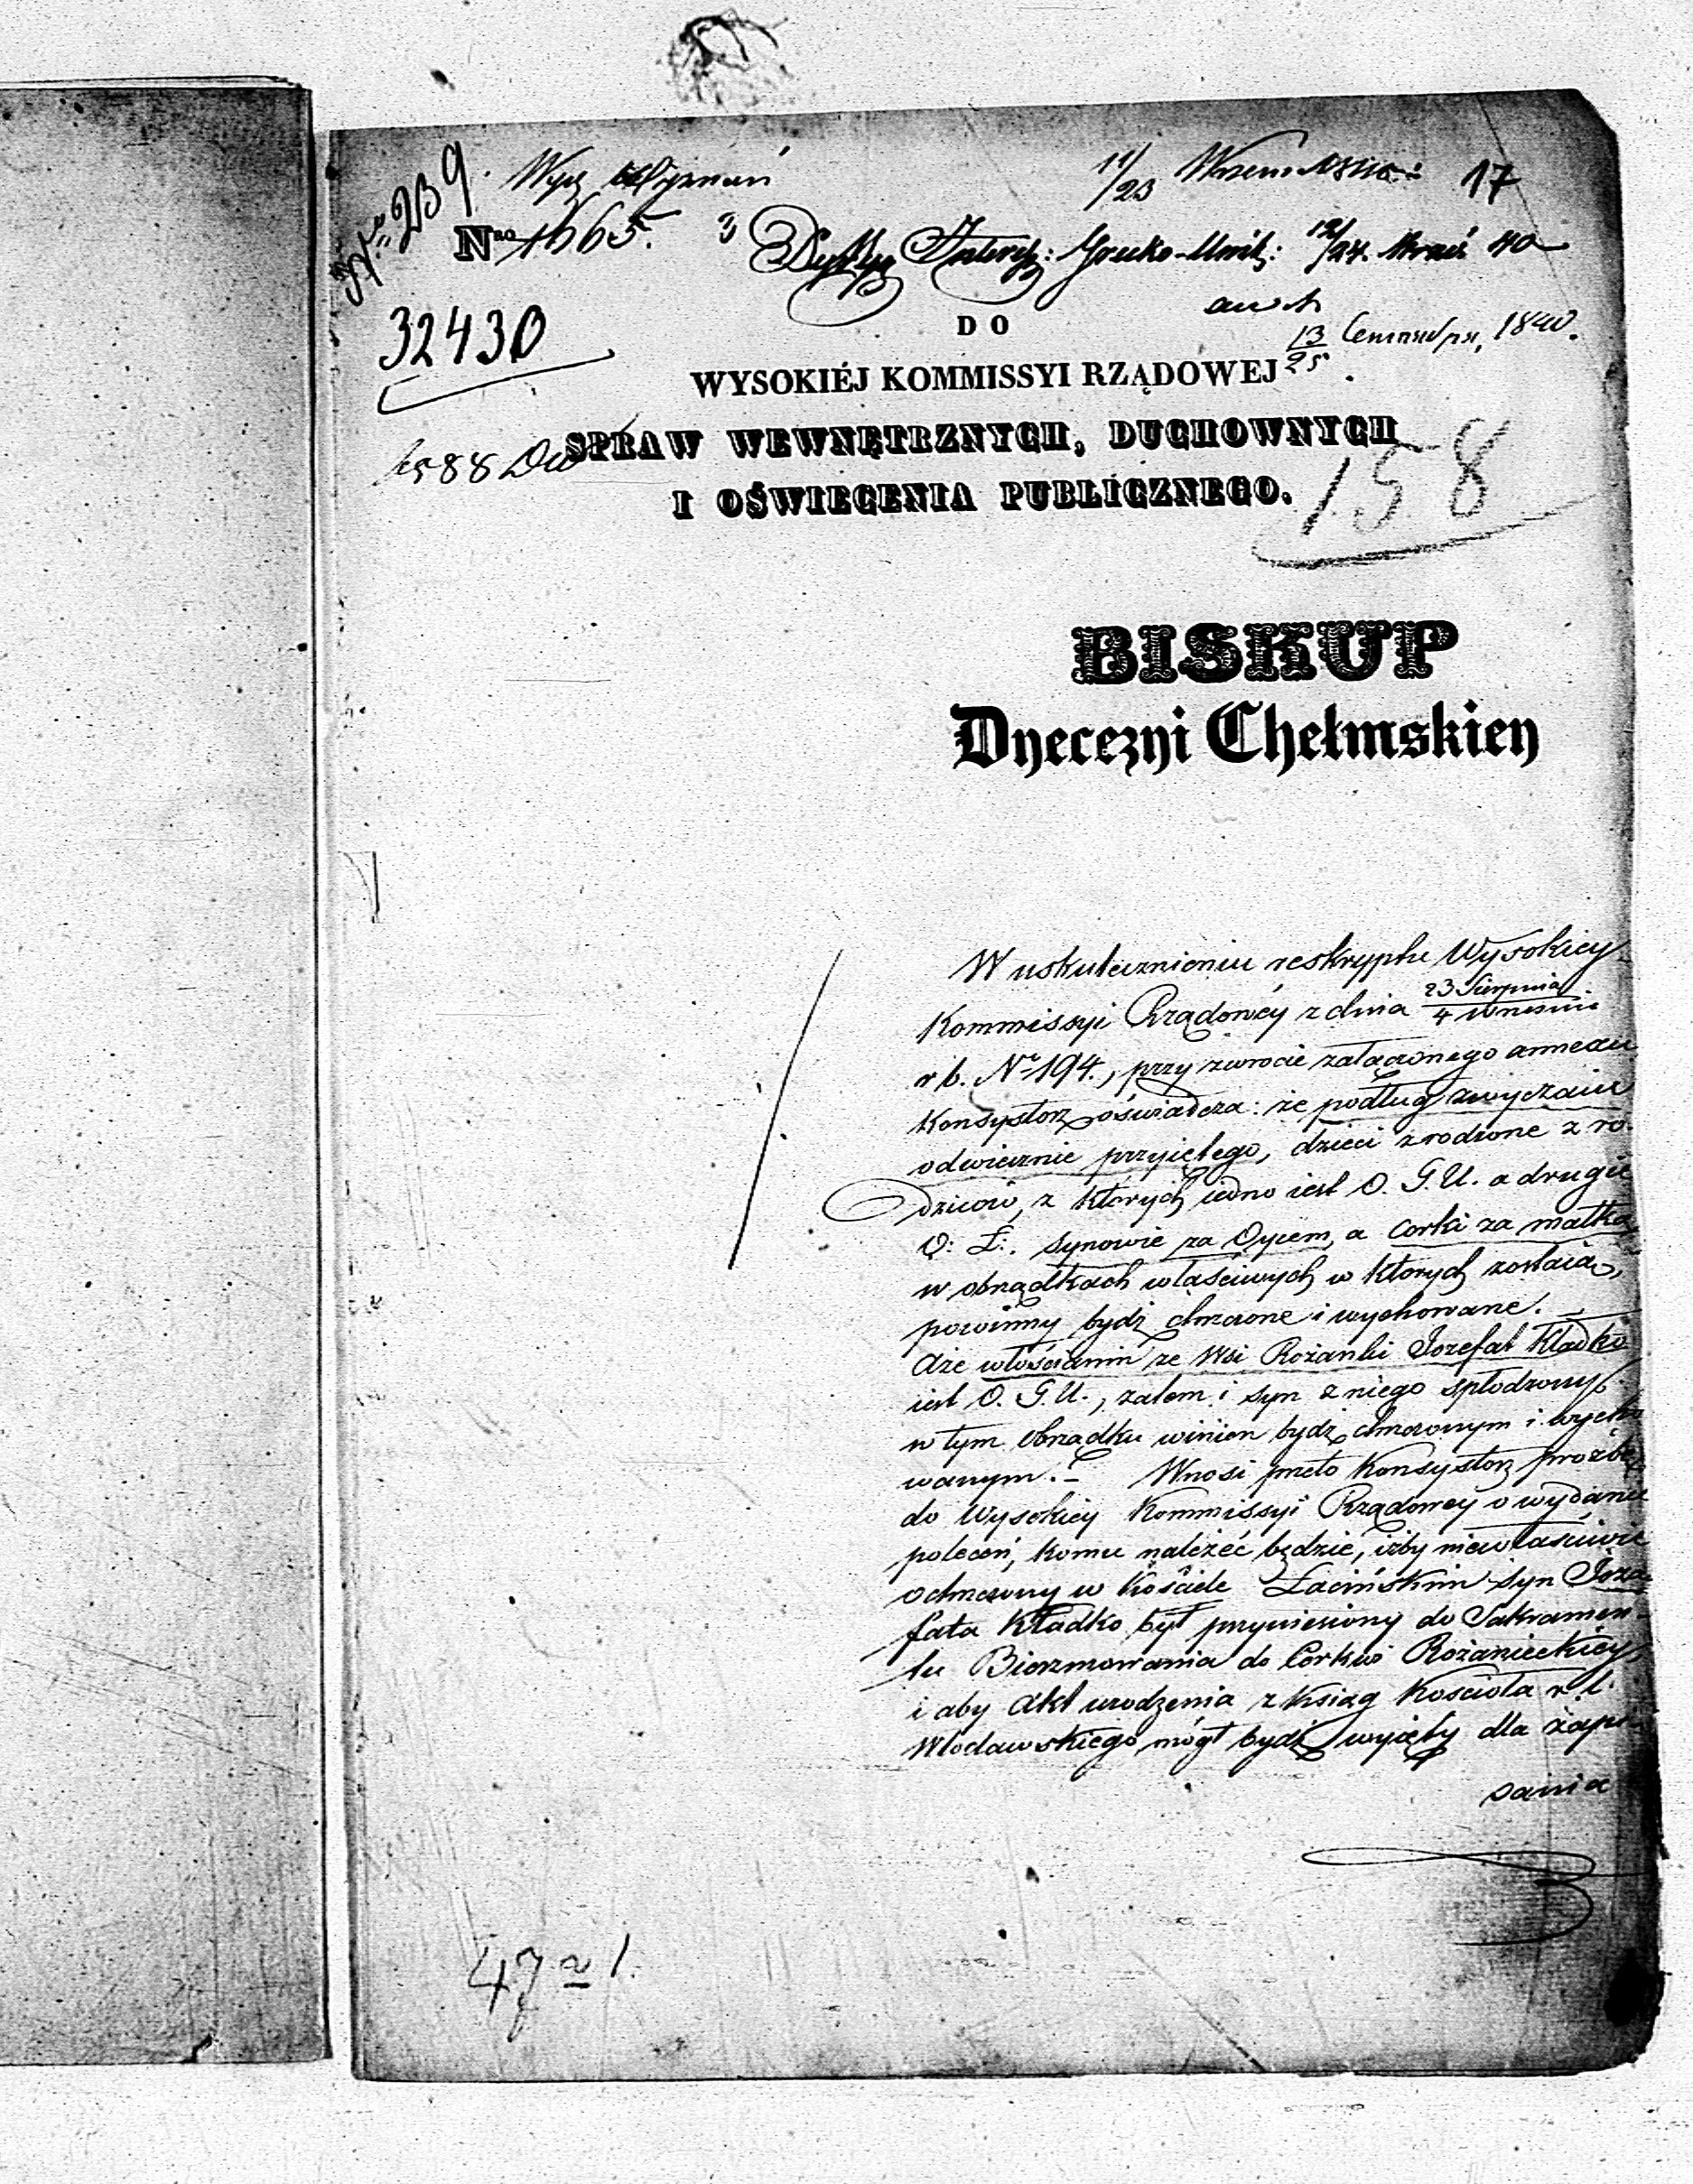 Nr 239.
Wyż Wyznań
11/23 Wrześ 1840.
17
Nro 1665.
Grecko-Unit: 12/24. Wrześ 40
32430
DO
13/25 Сентября, 1840.
WYSOKIÉJ KOMMISSYI RZĄDOWEJ
SPRAW WEWNĘTRZNYCH, DUCHOWNYCH
588
158
I OŚWIECENIA PUBLICZNEGO.
BISKUP
Dyecezyi Chełmskiey
W uskutecznieniu reskryptu Wysokiey
Kommissyi Rządowéy z dnia 23 Sierpnia / 4 Wrześnie
r b. Nr 194., przy zwrocie załączonego annexu
Konsystorz oświadcza: że podług zwyczaiu
odwiecznie przyiętego, dzieci zrodzone z ro-
dziców, z których iedno iest O. G. U. a drugie
O: Ł:. synowie za Oycem, a corki za matką,
w obrządkach właściwych w których zostaią,
powinny bydź chrzczone i wychowane. _
Aże włościanin ze Wsi Rożanki Jozefat Kładko
iest O. G. U., zatem i syn z niego spłodzony,
w tym obrządku winien bydź chrzczonym i wycho
wanym. _ Wnosi przeto Konsystorz prozbę
do Wysokiey Kommissyi Rządowey o wydanie
poleceń, komu należéć będzie, iżby niewłaściwie
ochrzczony w Kościele Łacińskim syn Joza
fata Kładko był przyniesiony do Sakramen-
tu Bierzmowania do Cerkwi Rożanieckiey
i aby Akt urodzenia z Ksiąg Kościoła r. l.
Włodawskiego mógł bydź wyięty dla zapi-
sania
47 a 1.